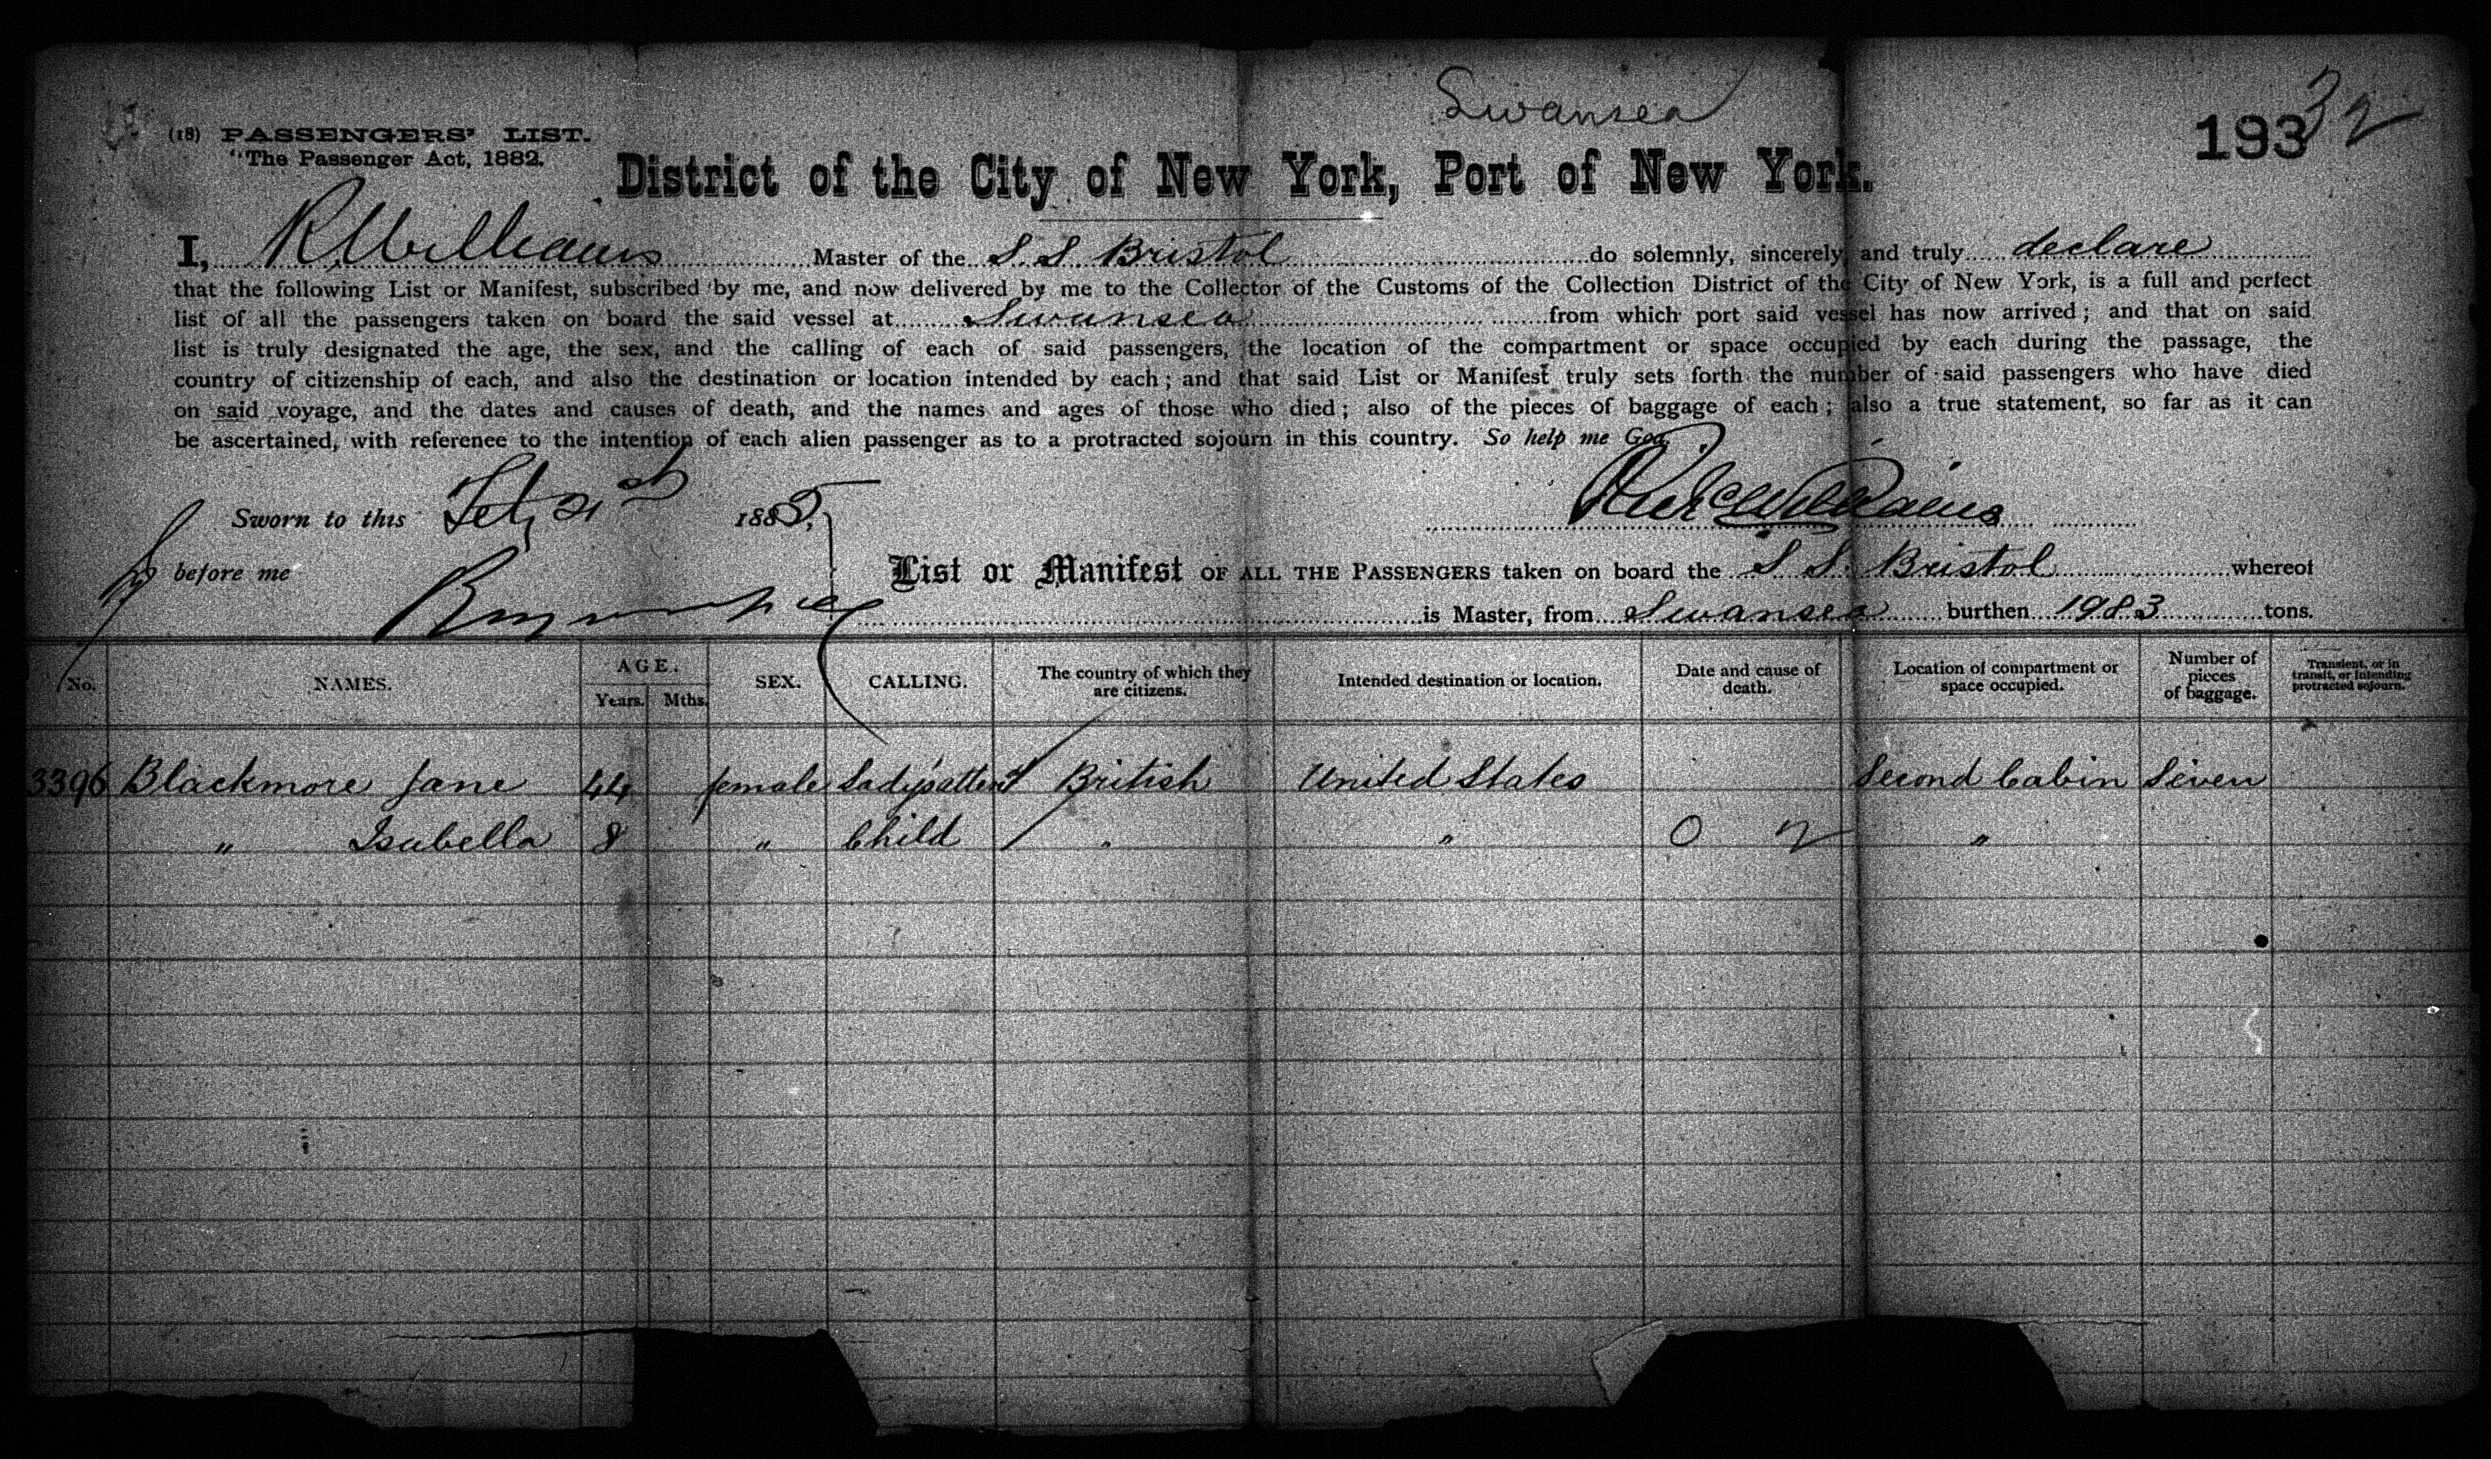 Swansea
(18) PASSENGERS' LIST.
193 32
"The Passenger Act, 1882.
District of the City of New York, Port of New York.
I, R Williams Master of the S S Bristol do solemnly, sincerely and truly declare
that the following List or Manifest, subscribed by me, and now delivered by me to the Collector of the Customs of the Collection District of the City of New York, is a full and perfect
list of all the passengers taken on board the said vessel at Swansea from which port said vessel has now arrived; and that on said
list is truly designated the age, the sex, and the calling of each of said passengers, the location of the compartment or space occupied by each during the passage, the
country of citizenship of each, and also the destination or location intended by each; and that said List or Manifest truly sets forth the number of said passengers who have died
on said voyage, and the dates and causes of death, and the names and ages of those who died; also of the pieces of baggage of each; also a true statement, so far as it can
be ascertained, with reference to the intention of each alien passenger as to a protracted sojourn in this country. So help me God.
Sworn to this Feb 21st 1885,
Richd Williams
before me
List or Manifest OF ALL THE PASSENGERS taken on board the S S. Bristol whereof
is Master, from Swansea burthen 1983 tons.
No. NAMES. AGE. Years. Mths. SEX. CALLING. The country of which they are citizens. Intended destination or location. Date and cause of death. Location of compartment or space occupied. Number of pieces of baggage. Transient, or in transit, or intending protracted sojourn.
3396 Blackmore Jane 44 female Lady's attend British United States Second Cabin Seven
" Isabella 8 " Child " " O "